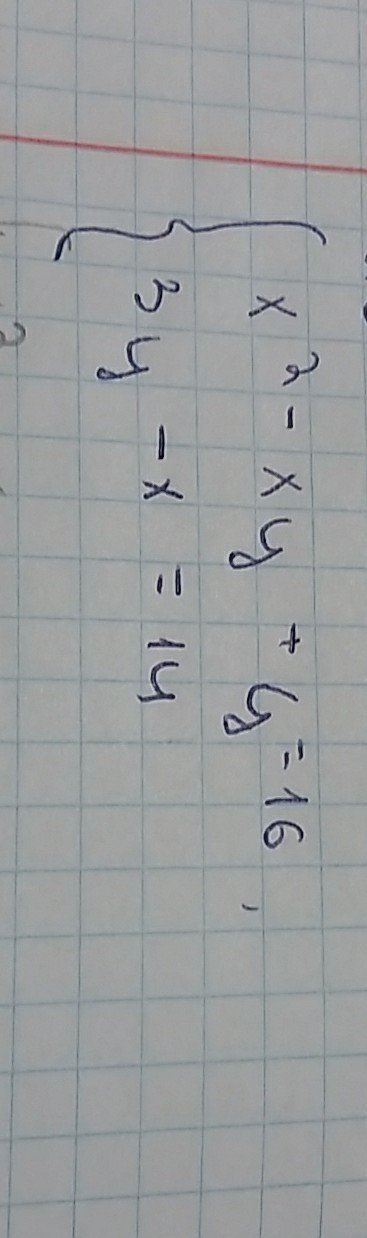 x² - xy + y = 16,
3y - x = 14